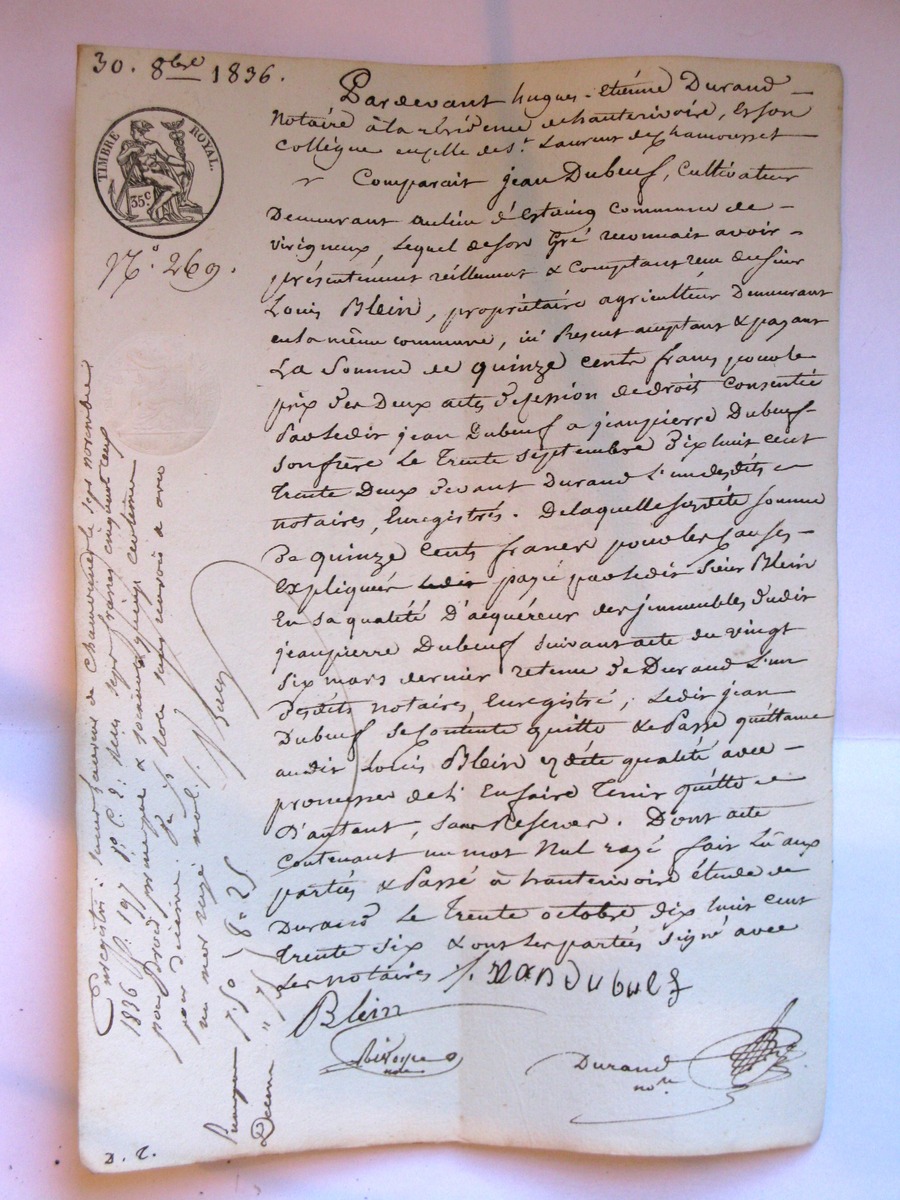 30. 8bre 1836.
TIMBRE ROYAL.
35c
No. 269.
Pardevant hugues-Etiénne Durand
Notaire à la résidence dehauterivoire, Et son
Collègue encelle de St. Laurent de chamousset
Comparait jean Dubeuf, Cultivateur
Demeurant aulieu d'Estaing Commune de
virigneux, Lequel deson Gré reconnait avoir
présentément réellement & Comptant reçu dusieur
Louis Blein, propriétaire agriculteur Demeurant
enla même commune, ici Present aceptant & payant
La Somme de quinze cents francs pourle
prix des Deux actes de cession de droit Consentie
Par ledit jean Dubeuf a jeanpierre Dubeuf
son frère Le Trente septembre Dix huit cent
Trente Deux Devant Durand L'un desdits
notaires, Enregistrés. Delaquelle susdite somme
De quinze cents francs pour les causes
Expliquées payé par ledit sieur Blein
En sa qualité D'acquéreur des jmmeubles dudit
jeanpierre Dubeuf suivant acte du vingt
six mars dernier retenu De Durand L'un
Desdits notaires, Enregistré; Ledit jean
Dubeuf se contente quitte & Passe quittance
audit Louis Blein esdite qualité avec
promesse de l'En faire Tenir quitte
D'autant, sans Reserves. D'ont acte
Contenant un mot Nul rayé fait Lû aux
parties & Passé à hauterivoire étude de
Durand Le Trente octobre Dix huit cent
Trente Six & ont Les parties signé avec
Les notaires
J. Dubuef
Blein
Durand
nore
Enregistré à Saint Laurent de Chamousset le sept novembre
1836 fo. 197 Vo. C. 2: Reçu sept francs cinquante cent
pour Droit principal & soixante quinze centimes
pour décime.
un mot rayé nul.
7 = 50
Decime " 75
8 = 25
D. T.